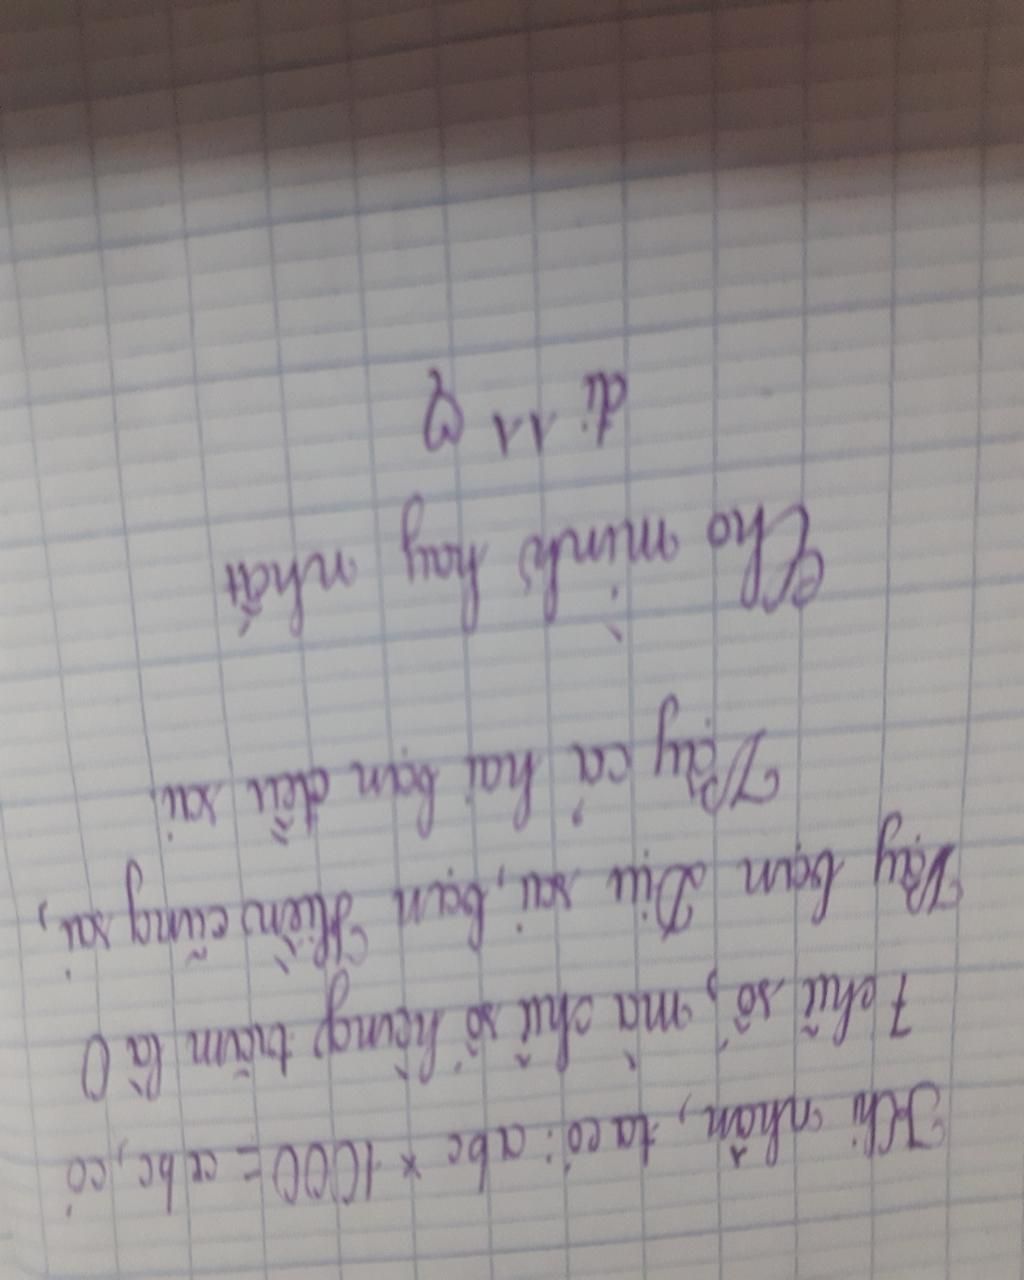 Khi nhân, ta có: abc × 1000 = abc, có
7 chữ số, mà chữ số hàng trăm là 0
Vậy bạn Dịu sai, bạn Hiền cũng sai,
Vậy cả hai bạn đều sai.
Cho mình hay nhất
đi 11